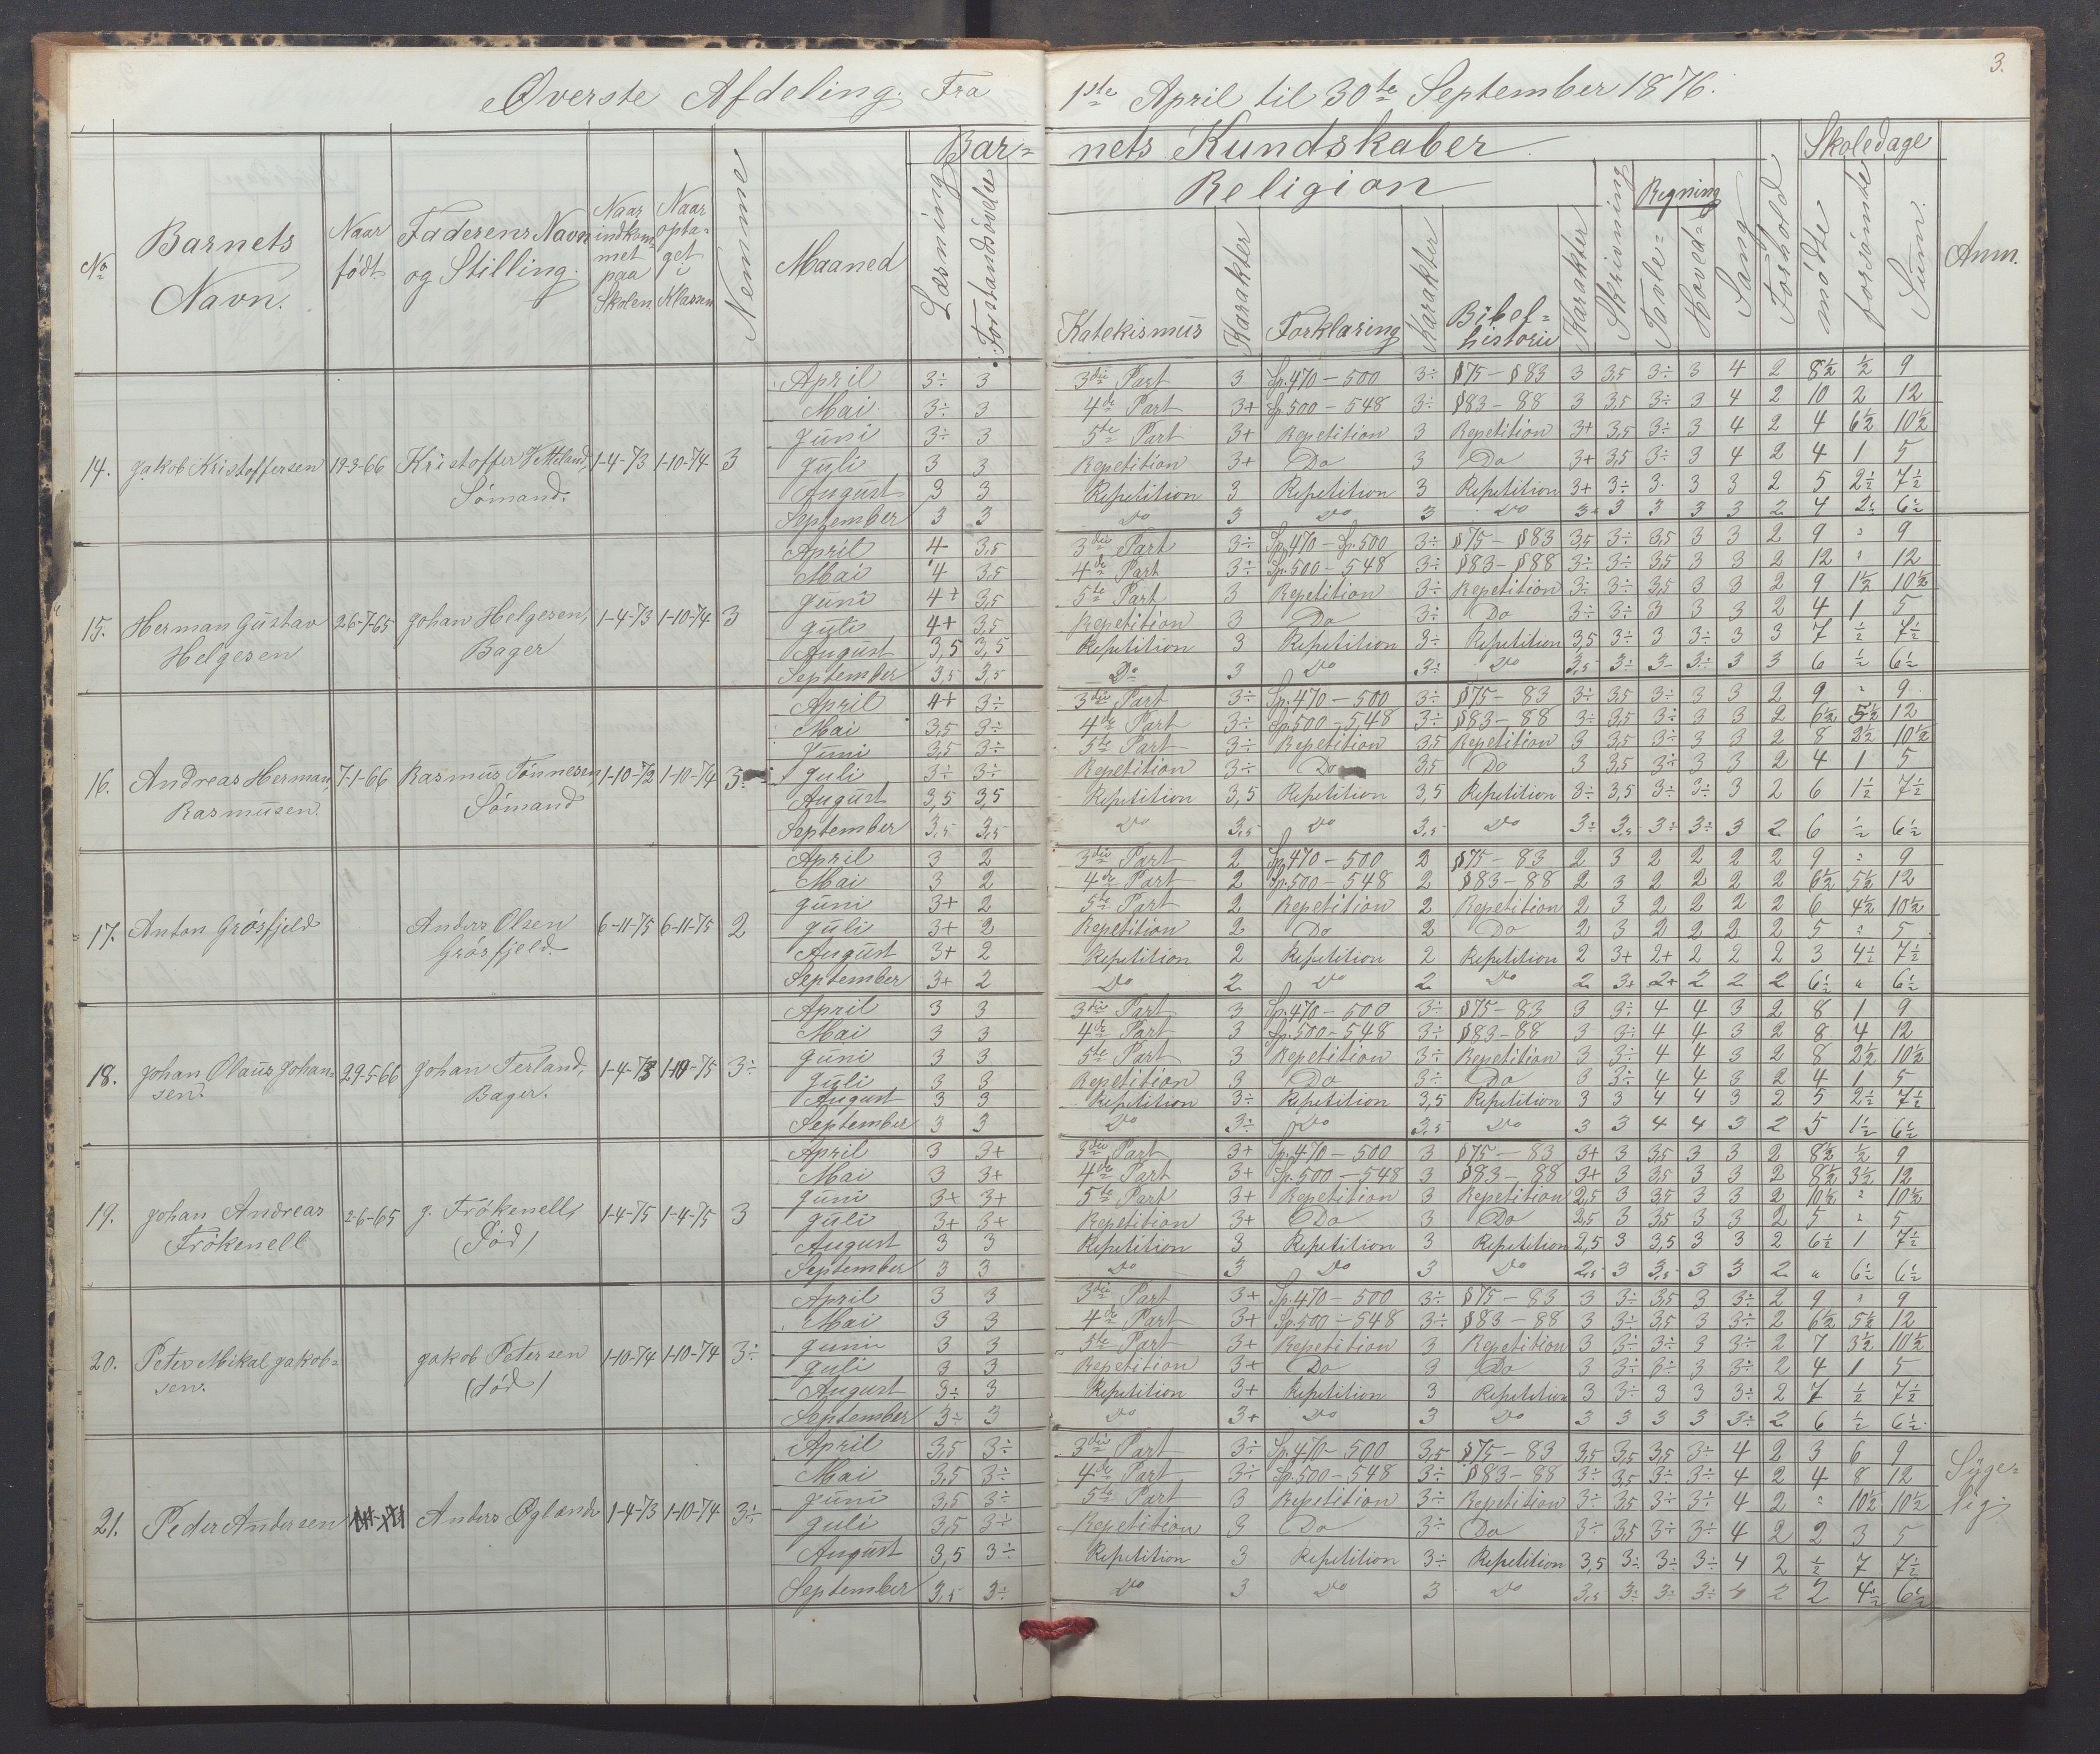 Øverste Afdeling. Fra 1ste April til 30te September 1876.
3.
No
Barnets Navn.
Naar født
Faderens Navn og Stilling.
Naar indkommet paa Skolen
Naar optaget i Klassen
Nemme
Maaned
Barnets Kundskaber
Læsning
Forstandsøvelse
Religion
Katekismus
Karakter
Forklaring
Karakter
Bibelhistorie
Karakter
Skrivning
Regning
Tavle-
Hoved-
Sang
Forhold
Skoledage
mødte
forsømte
Sum.
Anm.
14. Jakob Kristoffersen 19-3-66 Kristoffer Vetteland, Sømand. 1-4-73 1-10-74 3
April 3÷ 3 3die Part 3 Sp. 470-500 3÷ §75-§83 3 3,5 3÷ 3 4 2 8½ ½ 9
Mai 3÷ 3 4de Part 3+ Sp. 500-548 3÷ §83-88 3 3,5 3÷ 3 4 2 10 2 12
Juni 3÷ 3 5te Part 3+ Repetition 3 Repetition 3+ 3,5 3÷ 3 4 2 4 6½ 10½
Juli 3 3 Repetition 3+ Do 3 Do 3+ 3,5 3÷ 3 4 2 4 1 5
August 3 3 Repetition 3 Repetition 3 Repetition 3+ 3÷ 3 3 3 2 5 2½ 7½
September 3 3 Do 3 Do 3 Do 3+ 3 3 3 3 2 4 2½ 6½
15. Herman Gustav Helgesen 26-7-65 Johan Helgesen, Bager 1-4-73 1-10-74 3
April 4 3,5 3die Part 3÷ Sp. 470-Sp. 500 3÷ §75-§83 3,5 3÷ 3,5 3 3 2 9 " 9
Mai 4 3,5 4de Part 3÷ Sp. 500-548 3÷ §83-§88 3÷ 3÷ 3,5 3 3 2 12 " 12
Juni 4+ 3,5 5te Part 3 Repetition 3÷ Repetition 3÷ 3÷ 3,5 3 3 2 9 1½ 10½
Juli 4+ 3,5 Repetition 3 Do 3÷ Do 3÷ 3÷ 3 3 3 2 4 1 5
August 3,5 3,5 Repetition 3 Repetition 3÷ Repetition 3,5 3÷ 3 3÷ 3 3 7 ½ 7½
September 3,5 3,5 Do 3 Do 3÷ Do 3,5 3÷ 3 3÷ 3 3 6 ½ 6½
16. Andreas Herman Rasmusen. 7-1-66 Rasmus Tønnesen, Sømand 1-10-72 1-10-74 3
April 4+ 3÷ 3die Part 3÷ Sp. 470-500 3÷ §75-83 3÷ 3,5 3÷ 3 3 2 9 " 9
Mai 3,5 3÷ 4de Part 3÷ Sp. 500-548 3÷ §83-88 3÷ 3,5 3÷ 3 3 2 6½ 5½ 12
Juni 3,5 3÷ 5te Part 3÷ Repetition 3,5 Repetition 3 3,5 3÷ 3 3 2 8 2½ 10½
Juli 3÷ 3÷ Repetition 3÷ Do 3,5 Do 3 3,5 3÷ 3 3 2 4 1 5
August 3,5 3,5 Repetition 3,5 Repetition 3,5 Repetition 3÷ 3,5 3÷ 3÷ 3 2 6 1½ 7½
September 3,5 3,5 Do 3,5 Do 3,5 Do 3÷ 3,5 3÷ 3÷ 3 2 6 ½ 6½
17. Anton Grøsfjeld Anders Olsen Grøsfjeld. 6-11-75 6-11-75 2
April 3 2 3die Part 2 Sp. 470-500 2 §75-83 2 3 2 2 2 2 9 " 9
Mai 3 2 4de Part 2 Sp. 500-548 2 §83-88 2 3 2 2 2 2 6½ 5½ 12
Juni 3+ 2 5te Part 2 Repetition 2 Repetition 2 3 2 2 2 2 6 4½ 10½
Juli 3+ 2 Repetition 2 Do 2 Do 2 3 2 2 2 2 5 " 5
August 3+ 2 Repetition 2 Repetition 2 Repetition 2 3+ 2+ 2 2 2 3 4½ 7½
September 3+ 2 Do 2 Do 2 Do 2 3+ 2+ 2 2 2 6½ " 6½
18. Johan Olaus Johansen. 29-5-66 Johan Terland, Bager. 1-4-73 1-10-75 3÷
April 3 3 3die Part 3 Sp. 470-500 3÷ §75-83 3 3÷ 4 4 3 2 8 1 9
Mai 3 3 4de Part 3 Sp. 500-548 3÷ §83-88 3 3÷ 4 4 3 2 8 4 12
Juni 3 3 5te Part 3 Repetition 3÷ Repetition 3 3÷ 4 4 3 2 8 2½ 10½
Juli 3 3 Repetition 3 Do 3÷ Do 3 3÷ 4 4 3 2 4 1 5
August 3 3 Repetition 3÷ Repetition 3,5 Repetition 3 3 4 4 3 2 5 2½ 7½
September 3 3 Do 3÷ Do 3,5 Do 3 3 4 4 3 2 5 1½ 6½
19. Johan Andreas Frøkenell 2-6-65 J. Frøkenell, (Død) 1-4-75 1-4-75 3
April 3 3+ 3die Part 3+ Sp. 470-500 3 §75-83 3+ 3 3,5 3 3 2 8½ ½ 9
Mai 3 3+ 4de Part 3+ Sp. 500-548 3 §83-88 3+ 3 3,5 3 3 2 8½ 3½ 12
Juni 3+ 3+ 5te Part 3+ Repetition 3 Repetition 2,5 3 3,5 3 3 2 10½ " 10½
Juli 3+ 3+ Repetition 3+ Do 3 Do 2,5 3 3,5 3 3 2 5 " 5
August 3 3 Repetition 3 Repetition 3 Repetition 2,5 3 3,5 3 3 2 6½ 1 7½
September 3 3 Do 3 Do 3 Do 2,5 3 3,5 3 3 2 " 6½ 6½
20. Peter Mikal Jakobsen. Jakob Petersen (død) 1-10-74 1-10-74 3÷
April 3 3 3die Part 3+ Sp. 470-500 3÷ §75-83 3 3÷ 3,5 3 3÷ 2 9 " 9
Mai 3 3 4de Part 3+ Sp. 500-548 3÷ §83-88 3 3÷ 3,5 3 3÷ 2 6½ 5½ 12
Juni 3 3 5te Part 3+ Repetition 3 Repetition 3 3÷ 3÷ 3 3÷ 2 7 3½ 10½
Juli 3 3 Repetition 3+ Do 3 Do 3 3÷ 3÷ 3 3÷ 2 4 1 5
August 3÷ 3 Repetition 3+ Repetition 3 Repetition 3 3÷ 3 3 3÷ 2 7 ½ 7½
September 3÷ 3 Do 3+ Do 3 Do 3 3 3 3 3÷ 2 6 ½ 6½
21. Peder Andersen Anders Øglænd 1-4-73 1-10-74 3÷
April 3,5 3÷ 3die Part 3÷ Sp. 470-500 3,5 §75-83 3,5 3,5 3,5 3÷ 4 2 3 6 9 Syge-
Mai 3,5 3÷ 4de Part 3÷ Sp. 500-548 3÷ §83-88 3÷ 3,5 3÷ 3÷ 4 2 4 8 12 lig.
Juni 3,5 3÷ 5te Part 3 Repetition 3÷ Repetition 3÷ 3,5 3÷ 3÷ 4 2 " 10½ 10½
Juli 3,5 3÷ Repetition 3 Do 3÷ Do 3÷ 3,5 3÷ 3÷ 4 2 2 3 5
August 3,5 3÷ Repetition 3 Repetition 3÷ Repetition 3,5 3÷ 3÷ 3÷ 4 2 ½ 7 7½
September 3,5 3÷ Do 3 Do 3 Do 3,5 3÷ 3÷ 3÷ 4 2 2 4½ 6½